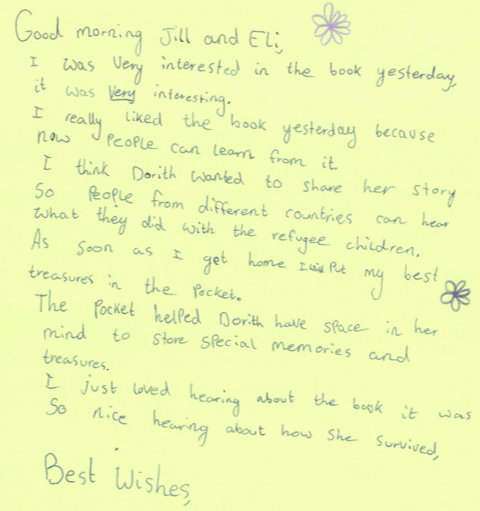 Good morning Jill and Eli,
I was Very interested in the book yesterday,
it was Very interesting.
I really liked the book yesterday because
now People can learn from it
I think Dorith wanted to share her story
So People from different countries can hear
what they did with the refugee children.
As soon as I get home I will Put my best
treasures in the Pocket.
The Pocket helped Dorith have space in her
mind to store special memories and
treasures.
I just loved hearing about the book it was
So nice hearing about how she survived,
Best Wishes,